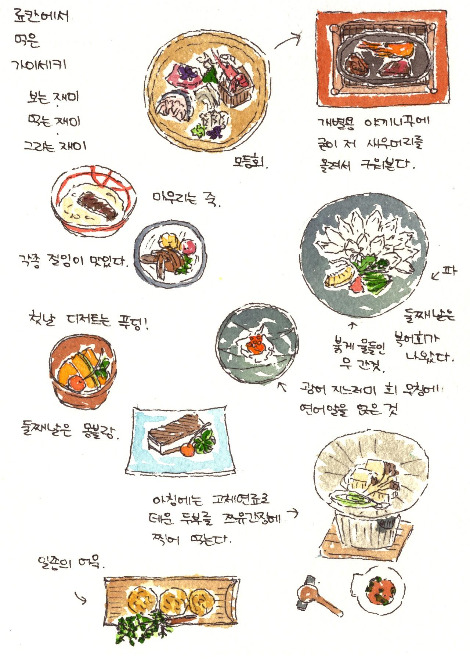 료칸에서
먹은
가이세키
보는 재미
먹는 재미
그리는 재미
모듬회.
개별용 야끼니꾸에
굳이 저 새우머리를
올려서 구워본다.
마무리는 죽.
각종 절임이 맛있다.
파
둘째날은
복어회가
나왔다.
붉게 물들인
무 간것.
첫날 디저트는 푸딩!
광어 지느러미 회 무침에
연어알을 얹은 것
둘째날은
아침에는 고체연료로
데운 두부를 쯔유간장에
찍어 먹는다.
일종의 어묵.